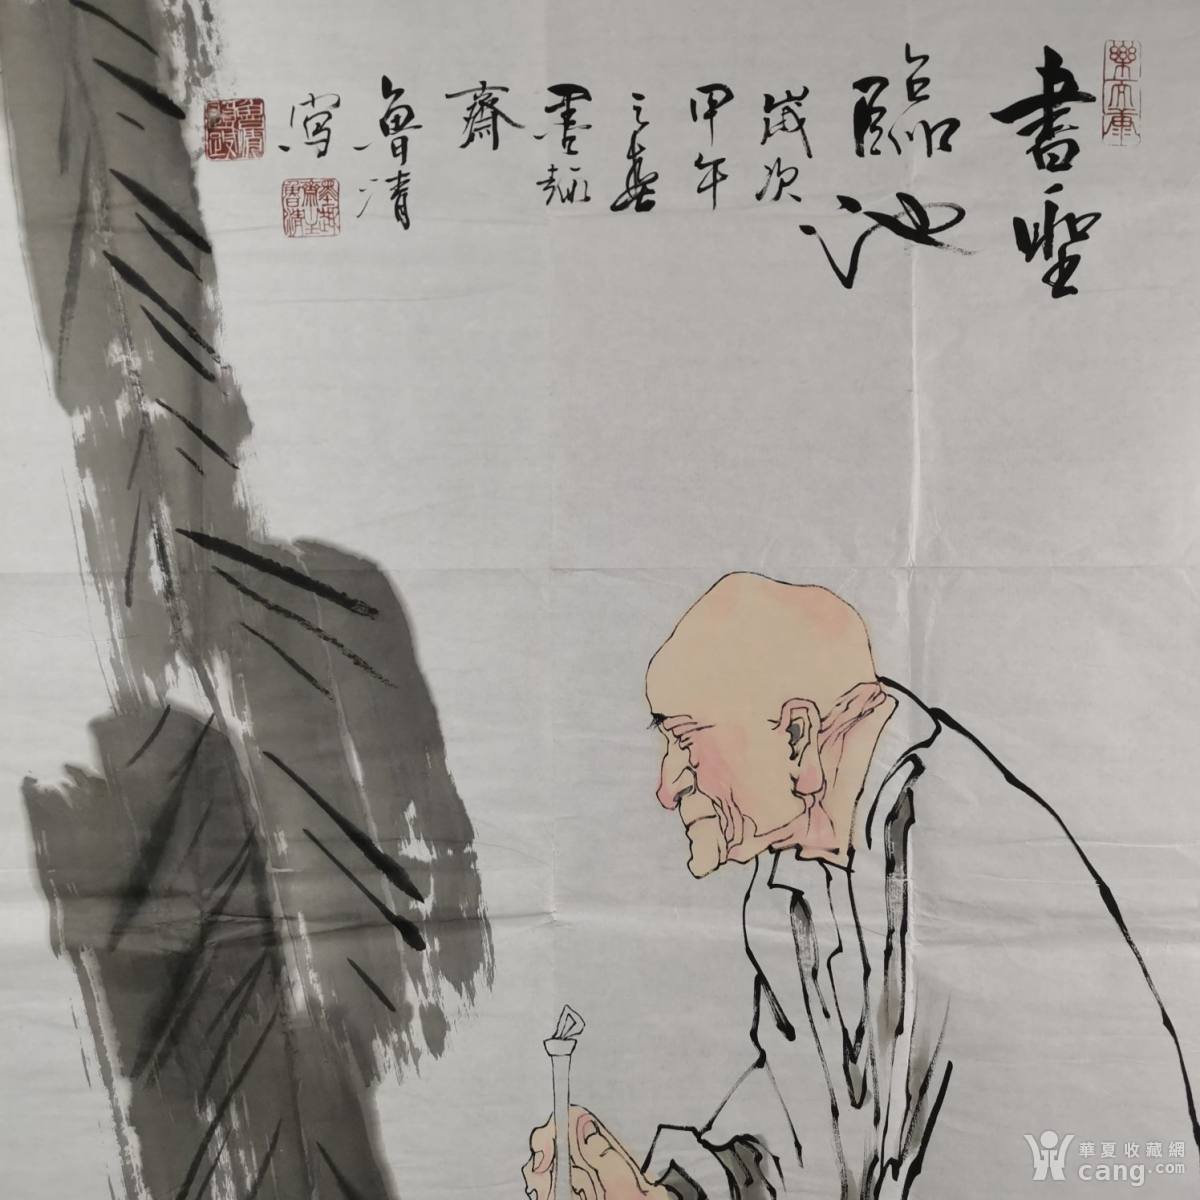 書聖
臨池
歲次
甲午
之春
墨趣
齋
魯清
寫
華夏收藏網
cang.com